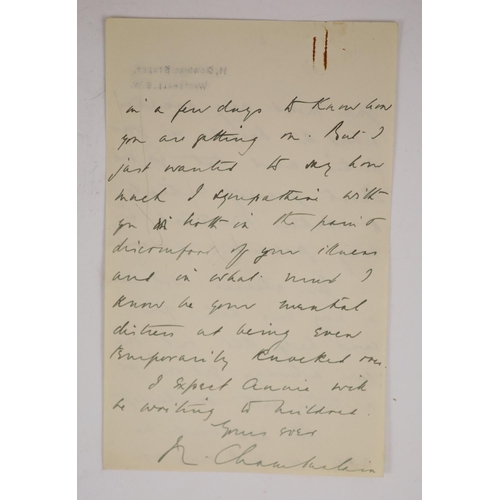 in a few days to know how
you are getting on. But I
just wanted to say how
much I sympathise with
you in both in the pain &
discomfort of your illness
and in what must I
know be your mental
distress at being even
temporarily knocked out.
I expect Annie will
be writing to Mildred.
Yours ever
N. Chamberlain